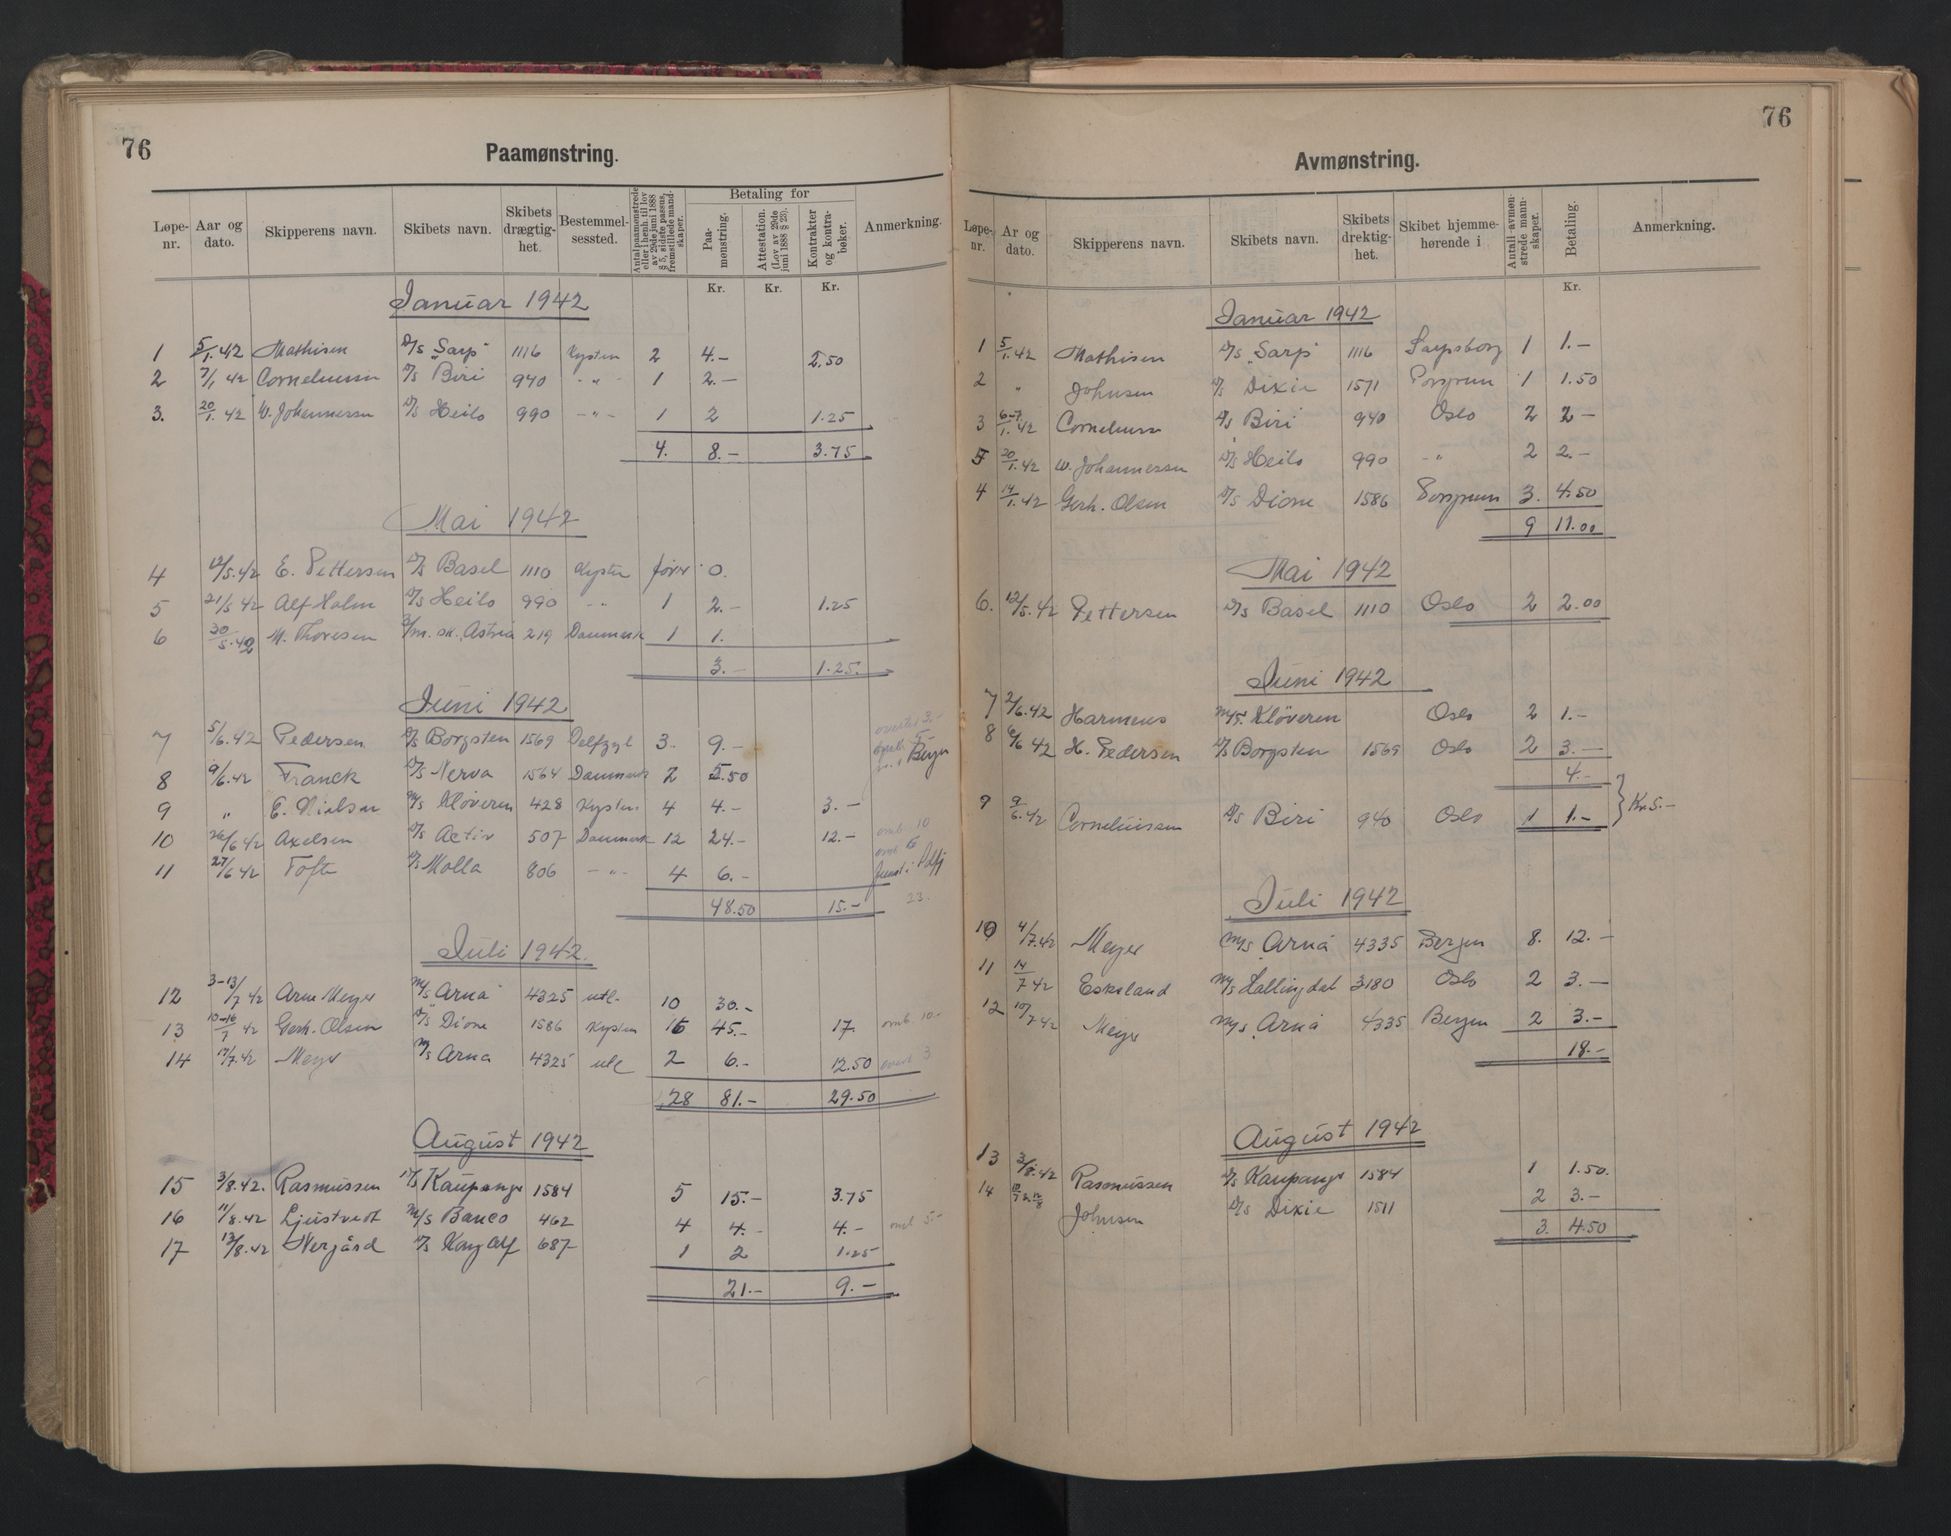 76
Paamønstring.
Løpe-nr. Aar og dato. Skipperens navn. Skibets navn. Skibets drægtighet. Bestemmelsessted. Antal paamønstrede eller i henh. til lov av 29de juni 1888 § 5, sidste passus, fremstillede mandskaper. Betaling for Paamønstring. Attestation. (Lov av 29de juni 1888 § 23). Kontrakter og kontrabøker. Anmerkning.
Kr. Kr. Kr.
Januar 1942
1 5/1.42 Mathisen D/S "Sarp" 1116 Kysten 2 4.- 2.50
2 7/1 42 Corneliussen D/S Biri 940 -"- 1 2.-
3. 20/1.42 W. Johannessen D/S Heilo 990 -"- 1 2 1.25
4. 8.- 3.75
Mai 1942
4 12/5.42 E. Pettersen D/S Basel 1110 Kysten 0.
5 21/5 42 Alf Holm D/S Heilo 990 -"- 1 2.- 1.25
6 30/5.42 M. Thoresen sk. Astria 219 Danmark 1 1.
3.- 1.25.
Juni 1942
7 5/6.42 Pedersen D/S Borgsten 1569 Delfzyl 3. 9.- Bergen
8 9/6.42 Franck D/S Nerva 1564 Danmark 2 5.50
9 " E. Nielsen M/S Kløveren 428 Kysten 4 4.- 3.-
10 26/6 42 Axelsen D/S Activ 507 Danmark 12 24.- 12.- omb 10
11 27/6 42 Toft D/S Molla 806 -"- 4 6.-
48.50 15.- 23.
Juli 1942.
12 3-13/7 42 Arne Meyer M/S "Arna" 4325 utl. 10 30.-
13 10-16/7 42 Gerh. Olsen D/S Dione 1586 Kysten 15 45.- 17. omb. 10.-
14 17/7.42 Meyer M/S Arna 4325 utl 2 6.- 12.50 3
28 81.- 29.50
August 1942
15 3/8.42. Rasmussen D/S Kaupanger 1584 5 15.- 3.75
16 11/8.42 Ljustvedt M/S Banco 462 4 4.- 4.- 5.-
17 13/8.42 Nergård D/S Kong Alf 687 1 2 1.25
21.- 9.-
76
Avmønstring.
Løpe-nr. Ar og dato. Skipperens navn. Skibets navn. Skibets drektighet. Skibet hjemmehørende i Antall avmønstrede mannskaper. Betaling. Anmerkning.
Kr.
Januar 1942
1 5/1.42 Mathisen D/S "Sarp" 1116 Sarpsborg 1 1.-
2 " Johnsen D/S Dixie 1571 Porsgrunn 1 1.50
3 6-7/1.42 Corneliussen D/S Biri 940 Oslo 2 2-
5 20/1.42 W. Johannessen D/S Heilo 990 -"- 2 2.-
4 14/1.42 Gerh. Olsen D/S Dione 1586 Porsgrunn 3. 4.50
9 11.00
Mai 1942
6. 12/5.42 Pettersen D/S Basel 1110 Oslo 2 2.00
Juni 1942
7 2/6.42 Harmens M/S. Kløveren Oslo 2 1.-
8 6/6 42 H. Pedersen D/S Borgsten 1569 Oslo 2 3.-
4.-
9 9/6.42 Corneliussen D/S Biri 940 Oslo 1 1.- Kr. 5.-
Juli 1942
10 4/7.42 Meyer M/S Arna 4335 Bergen 8. 12.-
11 14/7 42 Eskeland M/S Hallingdal 3180 Oslo 2 3.-
12 17/7 42 Meyer M/S Arna 4335 Bergen 2 3.-
18.-
August 1942
13 3/8.42 Rasmussen D/S Kaupanger 1584 1 1.50.
14 Johnsen D/S Dixie 1511 2 3.-
3. 4.50